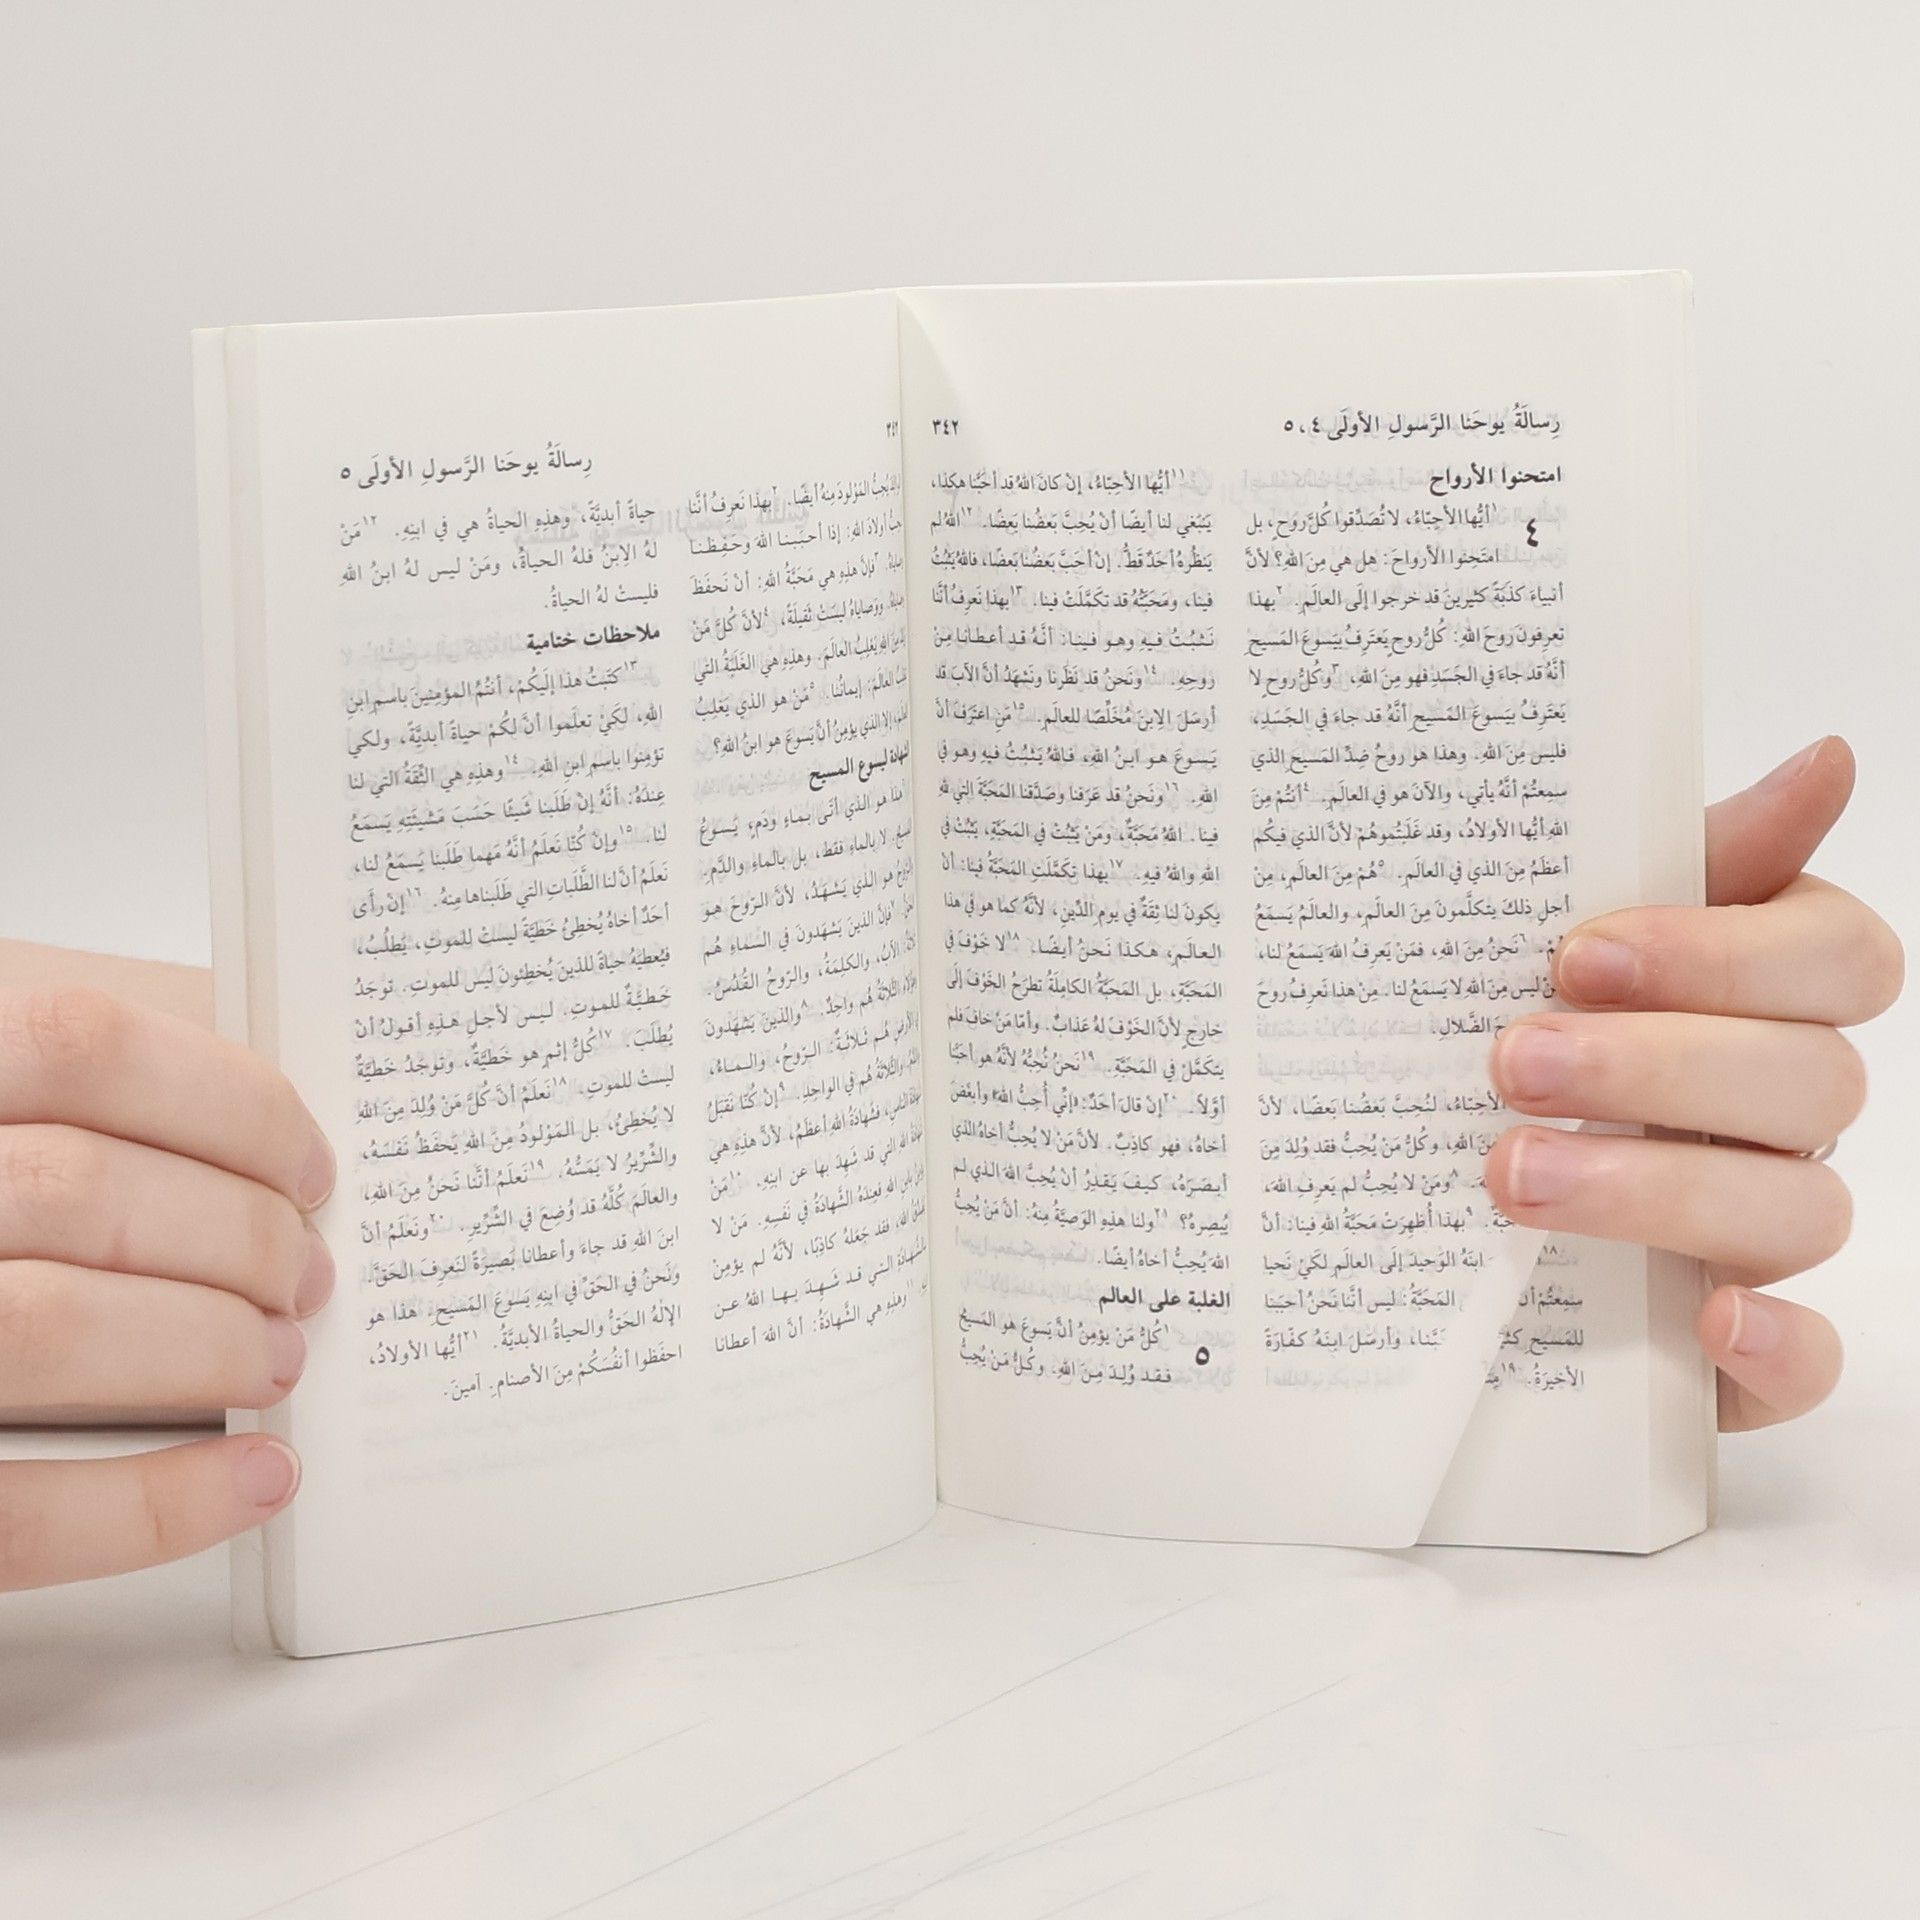 رِسالَةُ يوحَنا الرَّسولِ الأولَى ٤، ٥
٣٤٢
امتحنوا الأرواح
٤
١أيُّها الأحِبّاءُ، لا تُصَدِّقوا كُلَّ روحٍ، بل
امتَحِنوا الأرواحَ: هل هي مِنَ اللهِ؟ لأنَّ
أنبياءَ كذَبَةً كثيرينَ قد خرجوا إلَى العالَمِ. ٢بهذا
تعرِفونَ روحَ اللهِ: كُلُّ روحٍ يَعتَرِفُ بيَسوعَ المَسيحِ
أنَّهُ قد جاءَ في الجَسَدِ فهو مِنَ اللهِ، ٣وكُلُّ روحٍ لا
يَعتَرِفُ بيَسوعَ المَسيحِ أنَّهُ قد جاءَ في الجَسَدِ،
فليس مِنَ اللهِ. وهذا هو روحُ ضِدِّ المَسيحِ الذي
سمِعتُمْ أنَّهُ يأتي، والآنَ هو في العالَمِ. ٤أنتُمْ مِنَ
اللهِ أيُّها الأولادُ، وقد غَلَبتُموهُمْ لأنَّ الذي فيكُم
أعظَمُ مِنَ الذي في العالَمِ. ٥هُمْ مِنَ العالَمِ، مِنْ
أجلِ ذلكَ يتكلَّمونَ مِنَ العالَمِ، والعالَمُ يَسمَعُ
٦نَحنُ مِنَ اللهِ، فمَنْ يَعرِفُ اللهَ يَسمَعُ لنا،
ليس مِنَ اللهِ لا يَسمَعُ لنا. مِنْ هذا نَعرِفُ روحَ
الضَّلالِ.
الأحِبّاءُ، لنُحِبَّ بَعضُنا بَعضًا، لأنَّ
اللهِ، وكُلُّ مَنْ يُحِبُّ فقد وُلِدَ مِنَ
٨ومَنْ لا يُحِبُّ لم يَعرِفِ اللهَ،
٩بهذا أُظهِرَتْ مَحَبَّةُ اللهِ فينا: أنَّ
ابنَهُ الوَحيدَ إلَى العالَمِ لكَيْ نَحيا
المَحَبَّةُ: ليس أنَّنا نَحنُ أحبَبنا
وأرسَلَ ابنَهُ كفّارَةً
١٨
سمِعتُمْ أن
للمَسيحِ
الأخيرَةُ. ١٩
١١أيُّها الأحِبّاءُ، إنْ كانَ اللهُ قد أحَبَّنا هكذا،
يَنبَغي لنا أيضًا أنْ يُحِبَّ بَعضُنا بَعضًا. ١٢اللهُ لم
يَنظُرهُ أحَدٌ قَطُّ. إنْ أحَبَّ بَعضُنا بَعضًا، فاللهُ يَثبُتُ
فينا، ومَحَبَّتُهُ قد تكَمَّلَتْ فينا. ١٣بهذا نَعرِفُ أنَّنا
نَثبُتُ فيهِ وهو فينا: أنَّهُ قد أعطانا مِنْ
روحِهِ. ١٤ونَحنُ قد نَظَرنا ونَشهَدُ أنَّ الآبَ قد
أرسَلَ الِابنَ مُخَلِّصًا للعالَمِ. ١٥مَنِ اعتَرَفَ أنَّ
يَسوعَ هو ابنُ اللهِ، فاللهُ يَثبُتُ فيهِ وهو في
اللهِ. ١٦ونَحنُ قد عَرَفنا وصَدَّقنا المَحَبَّةَ التي للهِ
فينا. اللهُ مَحَبَّةٌ، ومَنْ يَثبُتْ في المَحَبَّةِ، يَثبُتْ في
اللهِ واللهُ فيهِ. ١٧بهذا تكَمَّلَتِ المَحَبَّةُ فينا: أنْ
يكونَ لنا ثِقَةٌ في يومِ الدِّينِ، لأنَّهُ كما هو في هذا
العالَمِ، هكذا نَحنُ أيضًا. ١٨لا خَوْفَ في
المَحَبَّةِ، بل المَحَبَّةُ الكامِلَةُ تطرَحُ الخَوْفَ إلَى
خارِجٍ لأنَّ الخَوْفَ لهُ عَذابٌ. وأمّا مَنْ خافَ فلم
يتكَمَّلْ في المَحَبَّةِ. ١٩نَحنُ نُحِبُّهُ لأنَّهُ هو أحَبَّنا
أوَّلاً. ٢٠إنْ قالَ أحَدٌ: «إنِّي أُحِبُّ اللهَ» وأبغَضَ
أخاهُ، فهو كاذِبٌ. لأنَّ مَنْ لا يُحِبُّ أخاهُ الذي
أبصَرَهُ، كيفَ يَقدِرُ أنْ يُحِبَّ اللهَ الذي لم
يُبصِرهُ؟ ٢١ولنا هذِهِ الوَصيَّةُ مِنهُ: أنَّ مَنْ يُحِبُّ
اللهَ يُحِبُّ أخاهُ أيضًا.
الغلبة على العالم
٥
١كُلُّ مَنْ يؤمِنُ أنَّ يَسوعَ هو المَسيحُ
فقد وُلِدَ مِنَ اللهِ. وكُلُّ مَنْ يُحِبُّ
رِسالَةُ يوحَنا الرَّسولِ الأولَى ٥
يُحِبُّ المَوْلودَ مِنهُ أيضًا. ٢بهذا نَعرِفُ أنَّنا
أولادَ اللهِ: إذا أحبَبنا اللهَ وحَفِظنا
٣فإنَّ هذِهِ هي مَحَبَّةُ اللهِ: أنْ نَحفَظَ
ووَصاياهُ ليسَتْ ثَقيلَةً، ٤لأنَّ كُلَّ مَنْ
اللهِ يَغلِبُ العالَمَ. وهذِهِ هي الغَلَبَةُ التي
العالَمَ: إيمانُنا. ٥مَنْ هو الذي يَغلِبُ
إلا الذي يؤمِنُ أنَّ يَسوعَ هو ابنُ اللهِ؟
شهادة ليسوع المسيح
هذا هو الذي أتَى بماءٍ ودَمٍ، يَسوعُ
لا بالماءِ فقط، بل بالماءِ والدَّمِ.
هو الذي يَشهَدُ، لأنَّ الرّوحَ هو
٧فإنَّ الذينَ يَشهَدونَ في السماءِ هُم
الآبُ، والكلِمَةُ، والرّوحُ القُدُسُ.
الثَّلاثَةُ هُم واحِدٌ. ٨والذينَ يَشهَدونَ
الأرضِ هُم ثَلاثَةٌ: الرّوحُ، والماءُ،
والثَّلاثَةُ هُم في الواحِدِ. ٩إنْ كُنّا نَقبَلُ
النّاسِ، فشَهادَةُ اللهِ أعظَمُ، لأنَّ هذِهِ هي
اللهِ التي قد شَهِدَ بها عن ابنِهِ. ١٠مَنْ
بابنِ اللهِ فعِندَهُ الشَّهادَةُ في نَفسِهِ. مَنْ لا
اللهَ، فقد جَعَلهُ كاذِبًا، لأنَّهُ لم يؤمِنْ
التي قد شَهِدَ بها اللهُ عن
١١وهذِهِ هي الشَّهادَةُ: أنَّ اللهَ أعطانا
حياةً أبديَّةً، وهذِهِ الحياةُ هي في ابنِهِ. ١٢مَنْ
لهُ الِابنُ فلهُ الحياةُ، ومَنْ ليس لهُ ابنُ اللهِ
فليستْ لهُ الحياةُ.
ملاحظات ختامية
١٣كتَبتُ هذا إلَيكُمْ، أنتُمُ المؤمِنينَ باسمِ ابنِ
اللهِ، لكَيْ تعلَموا أنَّ لكُمْ حياةً أبديَّةً، ولكي
تؤمِنوا باسمِ ابنِ اللهِ. ١٤وهذِهِ هي الثِّقَةُ التي لنا
عِندَهُ: أنَّهُ إنْ طَلَبنا شَيئًا حَسَبَ مَشيئَتِهِ يَسمَعُ
لنا. ١٥وإنْ كُنّا نَعلَمُ أنَّهُ مَهما طَلَبنا يَسمَعُ لنا،
نَعلَمُ أنَّ لنا الطَّلَباتِ التي طَلَبناها مِنهُ. ١٦إنْ رأَى
أحَدٌ أخاهُ يُخطِئُ خَطيَّةً ليستْ للموتِ، يَطلُبُ،
فيُعطيَهُ حياةً للذينَ يُخطِئونَ ليس للموتِ. توجَدُ
خَطيَّةٌ للموتِ. ليس لأجلِ هذِهِ أقولُ أنْ
يُطلَبَ. ١٧كُلُّ إثمٍ هو خَطيَّةٌ، وتوجَدُ خَطيَّةٌ
ليستْ للموتِ. ١٨نَعلَمُ أنَّ كُلَّ مَنْ وُلِدَ مِنَ اللهِ
لا يُخطِئُ، بل المَوْلودُ مِنَ اللهِ يَحفَظُ نَفسَهُ،
والشِّرِّيرُ لا يَمَسُّهُ. ١٩نَعلَمُ أنَّنا نَحنُ مِنَ اللهِ،
والعالَمَ كُلَّهُ قد وُضِعَ في الشِّرِّيرِ. ٢٠ونَعلَمُ أنَّ
ابنَ اللهِ قد جاءَ وأعطانا بَصيرَةً لنَعرِفَ الحَقَّ.
ونَحنُ في الحَقِّ في ابنِهِ يَسوعَ المَسيحِ. هذا هو
الإلهُ الحَقُّ والحياةُ الأبديَّةُ. ٢١أيُّها الأولادُ،
احفَظوا أنفُسَكُمْ مِنَ الأصنامِ. آمينَ.